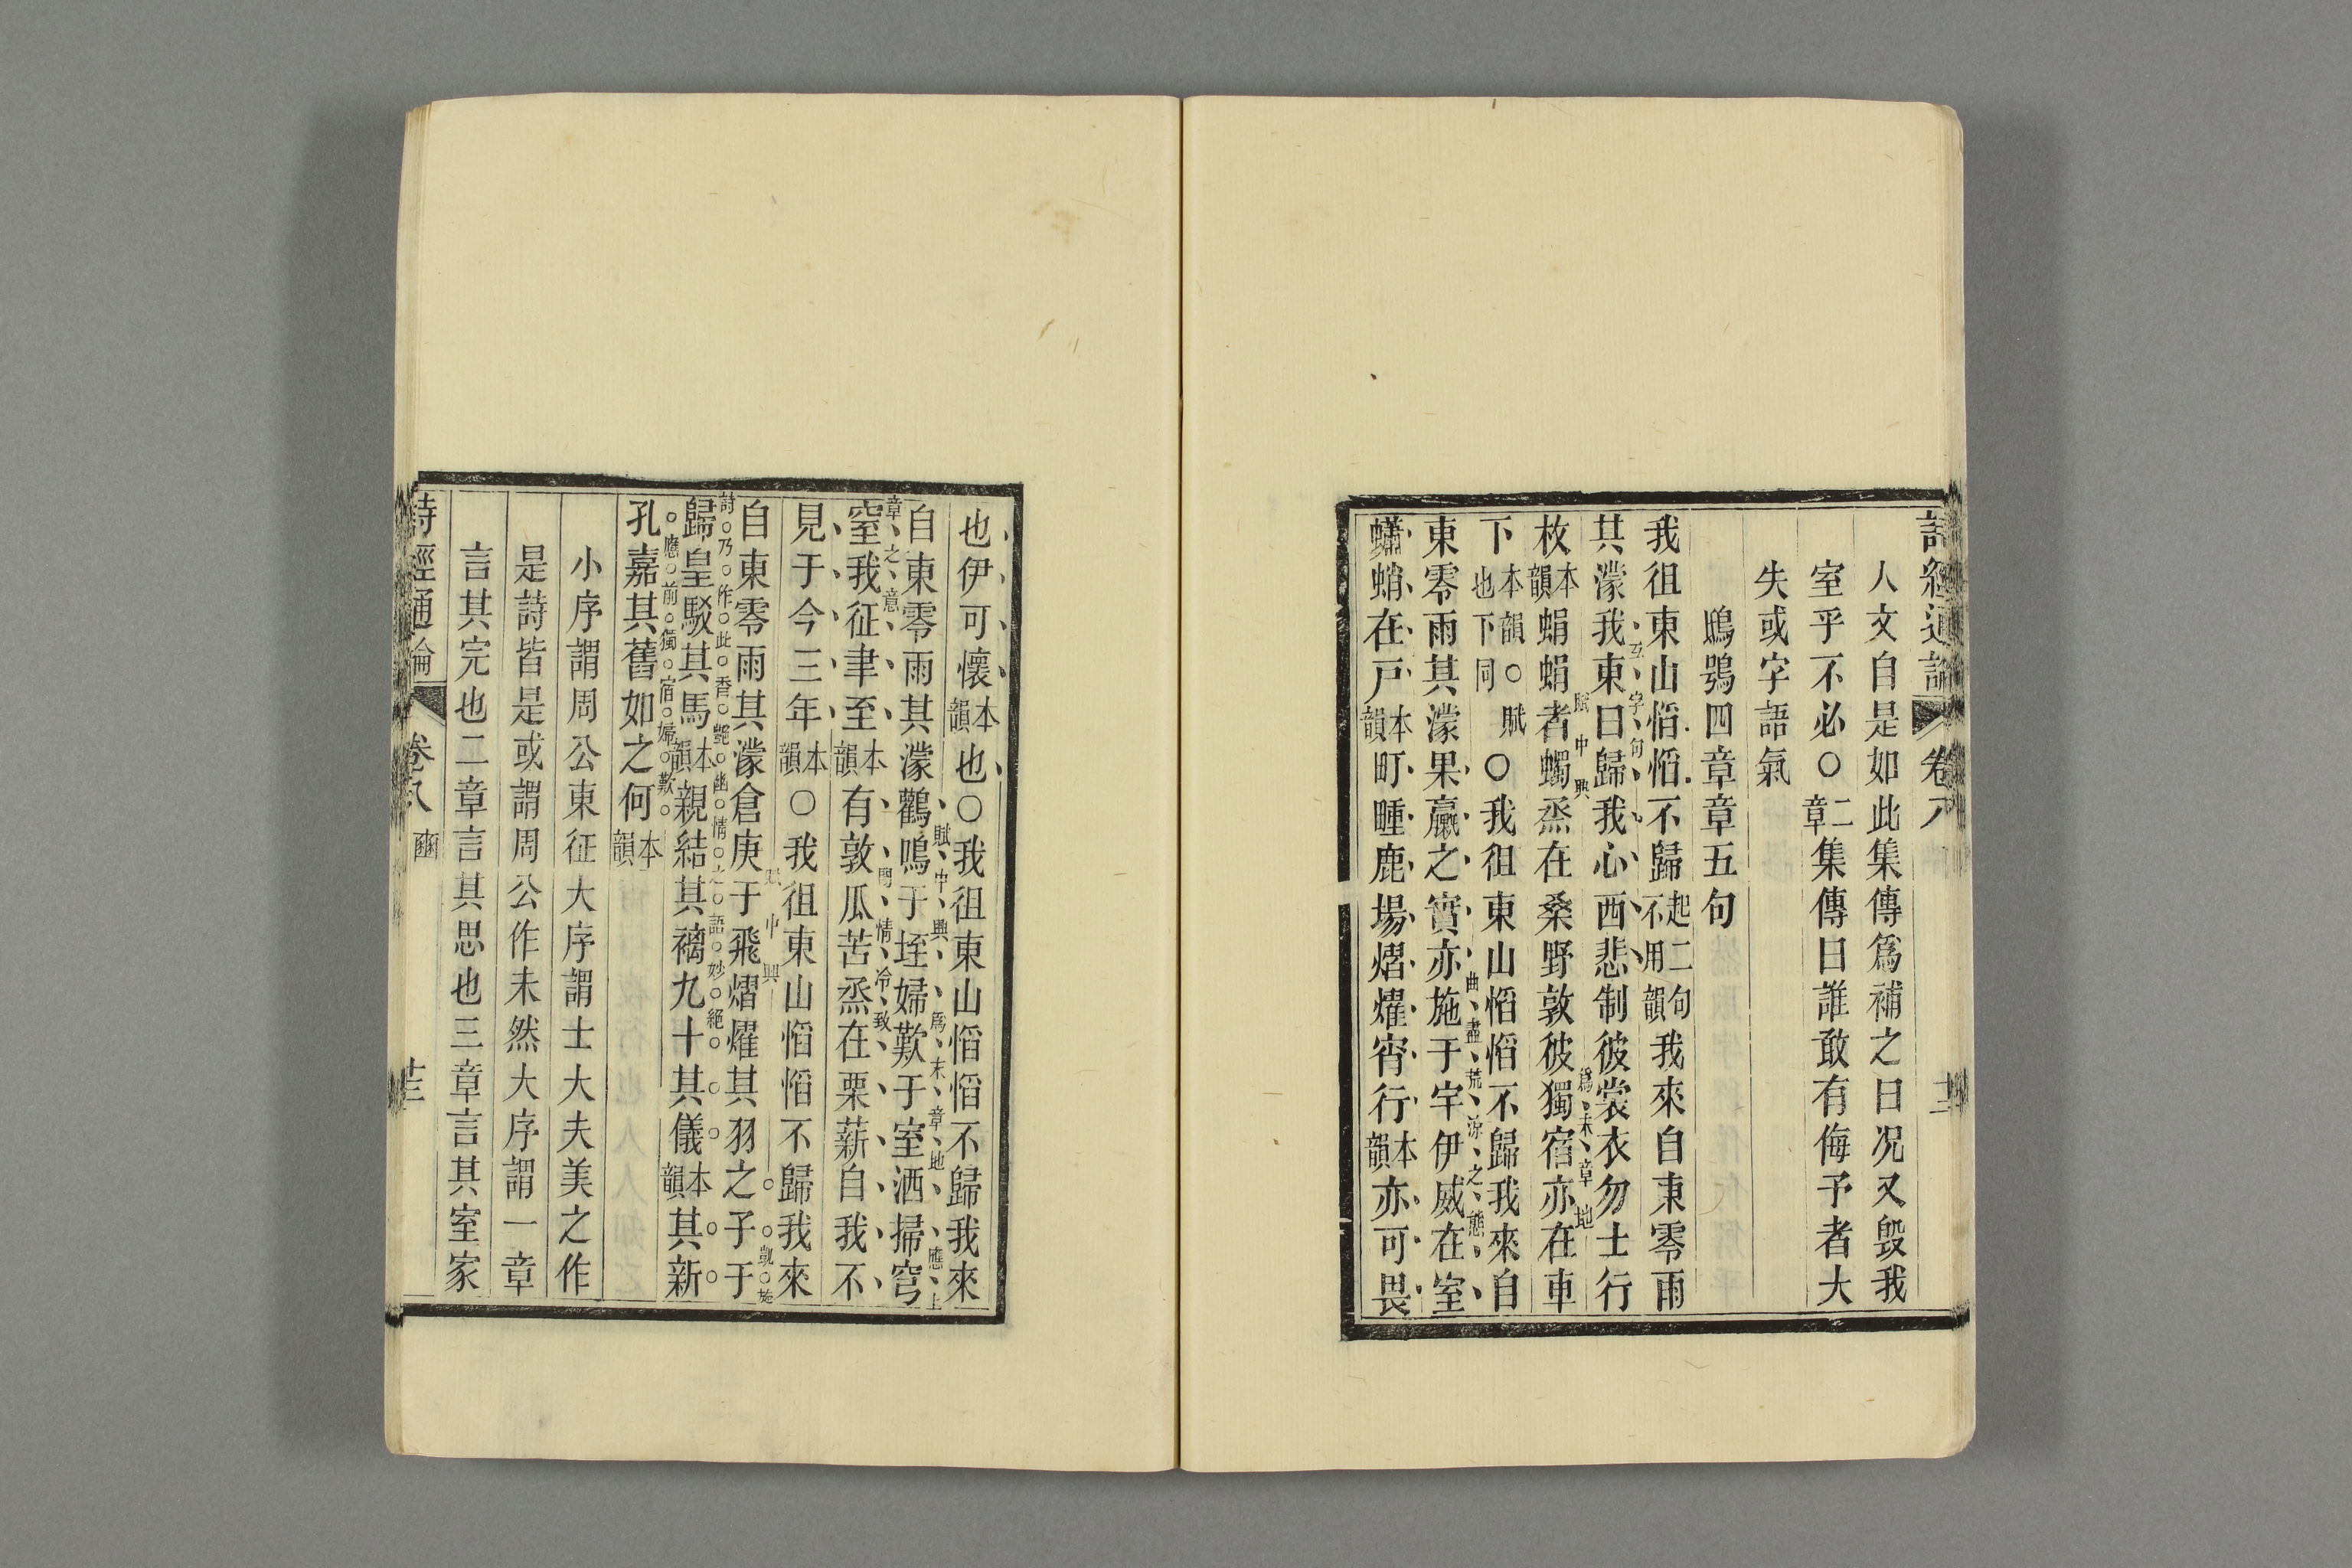 詩經通論 卷八
人文自是如此集傳爲補之曰况又毁我
室乎不必〇二章集傳曰誰敢有侮予者大
失或字語氣
鴟鴞四章章五句
我徂東山慆慆不歸起二句不用韻我來自東零雨
其濛我東曰歸我心西悲制彼裳衣勿士行
互字句
枚本韻蜎蜎者蠋烝在桑野敦彼獨宿亦在車
賦中興 爲末章地
下本韻也下同〇賦〇我徂東山慆慆不歸我來自
東零雨其濛果臝之實亦施于宇伊威在室
曲盡荒涼之態
蠨蛸在戶本韻町畽鹿場熠燿宵行本韻亦可畏
也伊可懷本韻也〇我徂東山慆慆不歸我來
自東零雨其濛鸛鳴于垤婦歎于室洒掃穹
賦中興 爲末章地 應上
章之意
窒我征聿至本韻有敦瓜苦烝在栗薪自我不
閒情冷致
見于今三年本韻〇我徂東山慆慆不歸我來
自東零雨其濛倉庚于飛熠燿其羽之子于
賦中興 凱旋
詩乃作此香艷幽情之語妙絕
歸皇駁其馬本韻親結其褵九十其儀本韻其新
應前獨宿婦歎
孔嘉其舊如之何本韻
小序謂周公東征大序謂士大夫美之作
是詩皆是或謂周公作未然大序謂一章
言其完也二章言其思也三章言其室家
詩經通論 卷八 豳